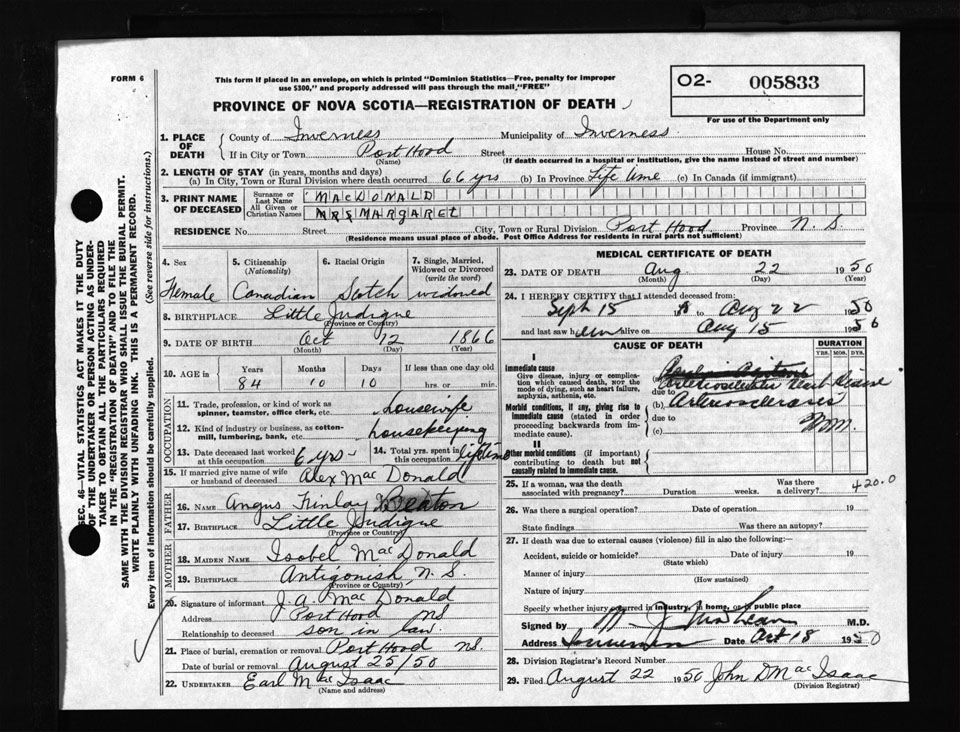 FORM 6
This form if placed in an envelope, on which is printed "Dominion Statistics—Free, penalty for improper
use $300," and properly addressed will pass through the mail, "FREE"
PROVINCE OF NOVA SCOTIA—REGISTRATION OF DEATH
O2- 005833
For use of the Department only
1. PLACE OF DEATH { County of Inverness Municipality of Inverness
If in City or Town Port Hood Street House No.
(Name) (If death occurred in a hospital or institution, give the name instead of street and number)
2. LENGTH OF STAY (in years, months and days)
(a) In City, Town or Rural Division where death occurred 66 yrs (b) In Province Life time (c) In Canada (if immigrant)
3. PRINT NAME OF DECEASED { Surname or Last Name MACDONALD
All Given or Christian Names MRS MARGARET
RESIDENCE No. Street City, Town or Rural Division Port Hood Province N. S.
(Residence means usual place of abode. Post Office Address for residents in rural parts not sufficient)
SEC. 46—VITAL STATISTICS ACT MAKES IT THE DUTY
OF THE UNDERTAKER OR PERSON ACTING AS UNDER-
TAKER TO OBTAIN ALL THE PARTICULARS REQUIRED
IN THE "REGISTRATION OF DEATH" AND TO FILE THE
SAME WITH THE DIVISION REGISTRAR WHO SHALL ISSUE THE BURIAL PERMIT.
WRITE PLAINLY WITH UNFADING INK. THIS IS A PERMANENT RECORD.
Every item of information should be carefully supplied. (See reverse side for instructions.)
4. Sex 5. Citizenship (Nationality) 6. Racial Origin 7. Single, Married, Widowed or Divorced (write the word)
Female Canadian Scotch widowed
8. BIRTHPLACE Little Judique
(Province or Country)
9. DATE OF BIRTH Oct 12 1866
(Month) (Day) (Year)
10. AGE in Years Months Days If less than one day old
84 10 10 hrs. or min.
OCCUPATION
11. Trade, profession or kind of work as spinner, teamster, office clerk, etc. housewife
12. Kind of industry or business, as cotton-mill, lumbering, bank, etc. housekeeping
13. Date deceased last worked at this occupation 6 yrs - 14. Total yrs. spent in this occupation lifetime
15. If married give name of wife or husband of deceased Alex MacDonald
FATHER
16. Name Angus Finlay Beaton
17. Birthplace Little Judique
(Province or Country)
MOTHER
18. Maiden Name Isobel MacDonald
19. Birthplace Antigonish, N. S.
(Province or Country)
20. Signature of informant J. A. MacDonald
Address Port Hood NS
Relationship to deceased son in law
21. Place of burial, cremation or removal Port Hood NS.
Date of burial or removal August 25/50
22. Undertaker Earl MacIsaac
(Name and address)
MEDICAL CERTIFICATE OF DEATH
23. DATE OF DEATH Aug 22 1950
(Month) (Day) (Year)
24. I HEREBY CERTIFY that I attended deceased from:
Sept 15 to Aug 22 1950
and last saw h er alive on Aug 15 1950
CAUSE OF DEATH DURATION
YRS. MOS. DYS.
I
Immediate cause
Give disease, injury or complication which caused death, NOT the mode of dying, such as heart failure, asphyxia, asthenia, etc.
(a) Arteriosclerotic Heart Disease
due to
Morbid conditions, if any, giving rise to immediate cause (stated in order proceeding backwards from immediate cause).
(b) Arteriosclerosis
due to
(c)
II
Other morbid conditions (if important) contributing to death but not causally related to immediate cause.
25. If a woman, was the death associated with pregnancy? Duration weeks. Was there a delivery? 420.0
26. Was there a surgical operation? Date of operation 19
State findings Was there an autopsy?
27. If death was due to external causes (violence) fill in also the following:
Accident, suicide or homicide? Date of injury 19
(State which)
Manner of injury
(How sustained)
Nature of injury
Specify whether injury occurred in industry, in home, or in public place
Signed by M.D.
Address Inverness Date Oct 18 1950
28. Division Registrar's Record Number
29. Filed August 22 1950 John D MacIsaac
(Division Registrar)